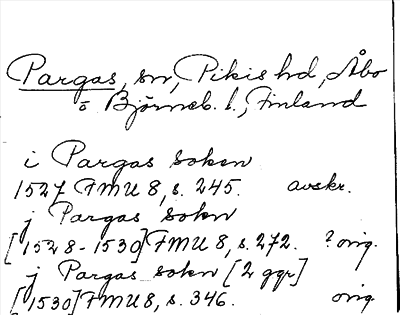 Pargas, sn, Pikis hd, Åbo
o Björneb. l., Finland
i Pargas soken
1527 FMU 8, s. 245. avskr.
j Pargas sokn
[1528-1530] FMU 8, s. 272. ? orig.
j Pargas sokn [2 ggr]
[1530] FMU 8, s. 346. orig